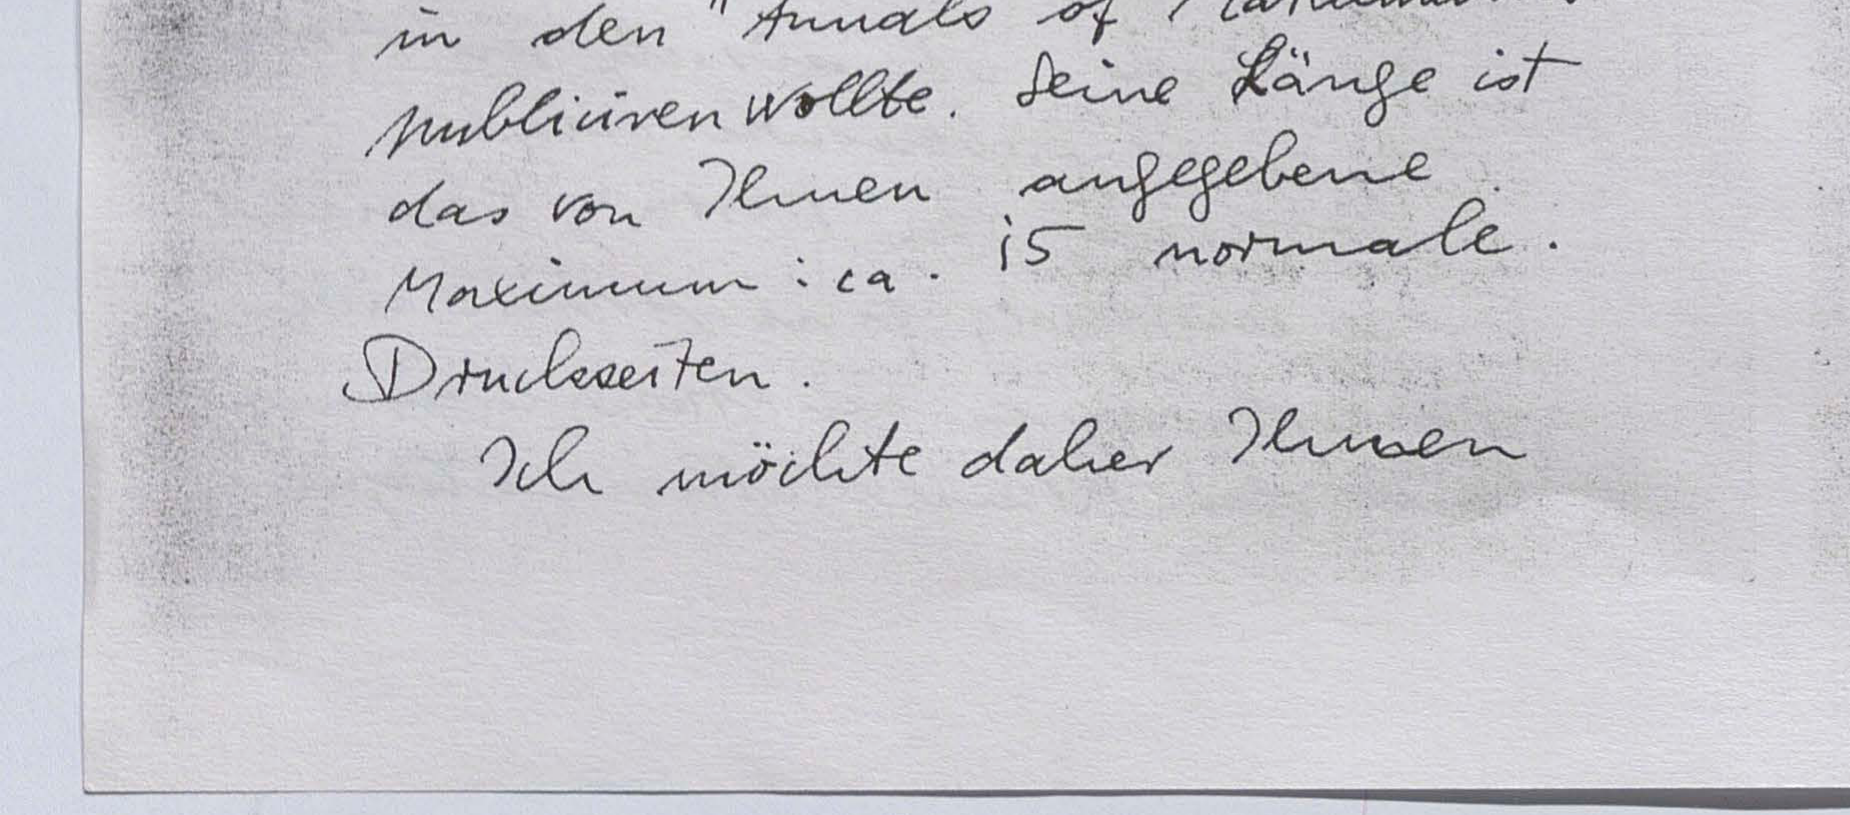 in den "Annals of Mathematics
publiciren wollte. Seine Länge ist
das von Ihnen angegebene
Maximum : ca. 15 normale.
Druckseiten.
Ich möchte daher Ihnen